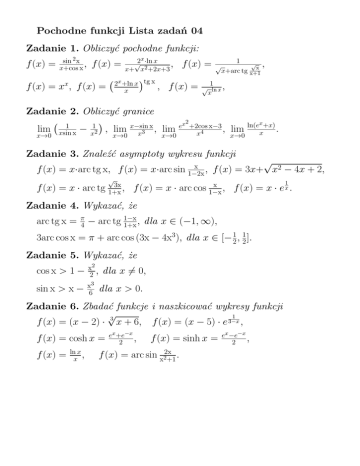 Pochodne funkcji Lista zadań 04
Zadanie 1. Obliczyć pochodne funkcji:
f(x) = \frac{\sin^2 x}{x+\cos x}, f(x) = \frac{2^x \cdot \ln x}{x+\sqrt{x^2+2x+3}}, f(x) = \frac{1}{\sqrt{x}+\text{arc tg}\frac{\sqrt{x}}{x+1}},
f(x) = x^x, f(x) = \left(\frac{2^x+\ln x}{x}\right)^{\text{tg} x}, f(x) = \frac{1}{\sqrt{x^{\ln x}}},
Zadanie 2. Obliczyć granice
\lim_{x→0} \left(\frac{1}{x \sin x} − \frac{1}{x^2}\right), \lim_{x→0} \frac{x−\sin x}{x^3}, \lim_{x→0} \frac{e^{x^2}+2\cos x−3}{x^4}, \lim_{x→0} \frac{\ln(e^x+x)}{x}.
Zadanie 3. Znaleźć asymptoty wykresu funkcji
f(x) = x·arc tg x, f(x) = x·arc sin \frac{x}{1−2x}, f(x) = 3x+\sqrt{x^2 − 4x + 2},
f(x) = x · arc tg \frac{\sqrt{3}x}{1+x}, f(x) = x · arc cos \frac{x}{1−x}, f(x) = x · e^{\frac{1}{x}}.
Zadanie 4. Wykazać, że
arc tg x = \frac{π}{4} − arc tg \frac{1−x}{1+x}, dla x ∈ (−1, ∞),
3arc cos x = π + arc cos (3x − 4x^3), dla x ∈ [−\frac{1}{2}, \frac{1}{2}].
Zadanie 5. Wykazać, że
cos x > 1 − \frac{x^2}{2}, dla x ≠ 0,
sin x > x − \frac{x^3}{6} dla x > 0.
Zadanie 6. Zbadać funkcje i naszkicować wykresy funkcji
f(x) = (x − 2) · \sqrt[3]{x + 6}, f(x) = (x − 5) · e^{\frac{1}{3−x}},
f(x) = cosh x = \frac{e^x+e^{−x}}{2}, f(x) = sinh x = \frac{e^x−e^{−x}}{2},
f(x) = \frac{\ln x}{x}, f(x) = arc sin \frac{2x}{x^2+1}.